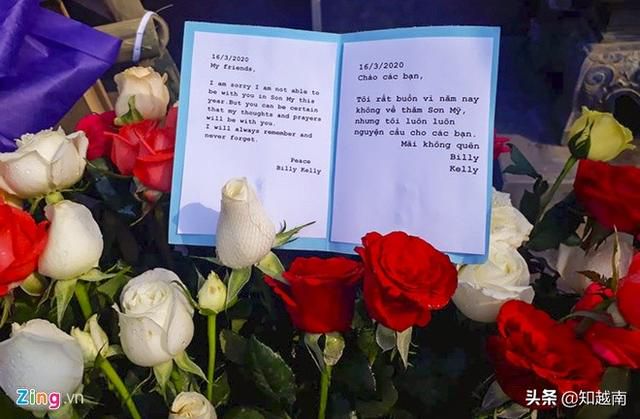 16/3/2020
My friends,
I am sorry I am not able to
be with you in Son My this
year.But you can be certain
that my thoughts and prayers
will be with you.
I will always remember and
never forget.
Peace
Billy Kelly
16/3/2020
Chào các bạn,
Tôi rất buồn vì năm nay
không về thăm Sơn Mỹ,
nhưng tôi luôn luôn
nguyện cầu cho các bạn.
Mãi không quên
Billy
Kelly
Zing.vn
头条 @知越南